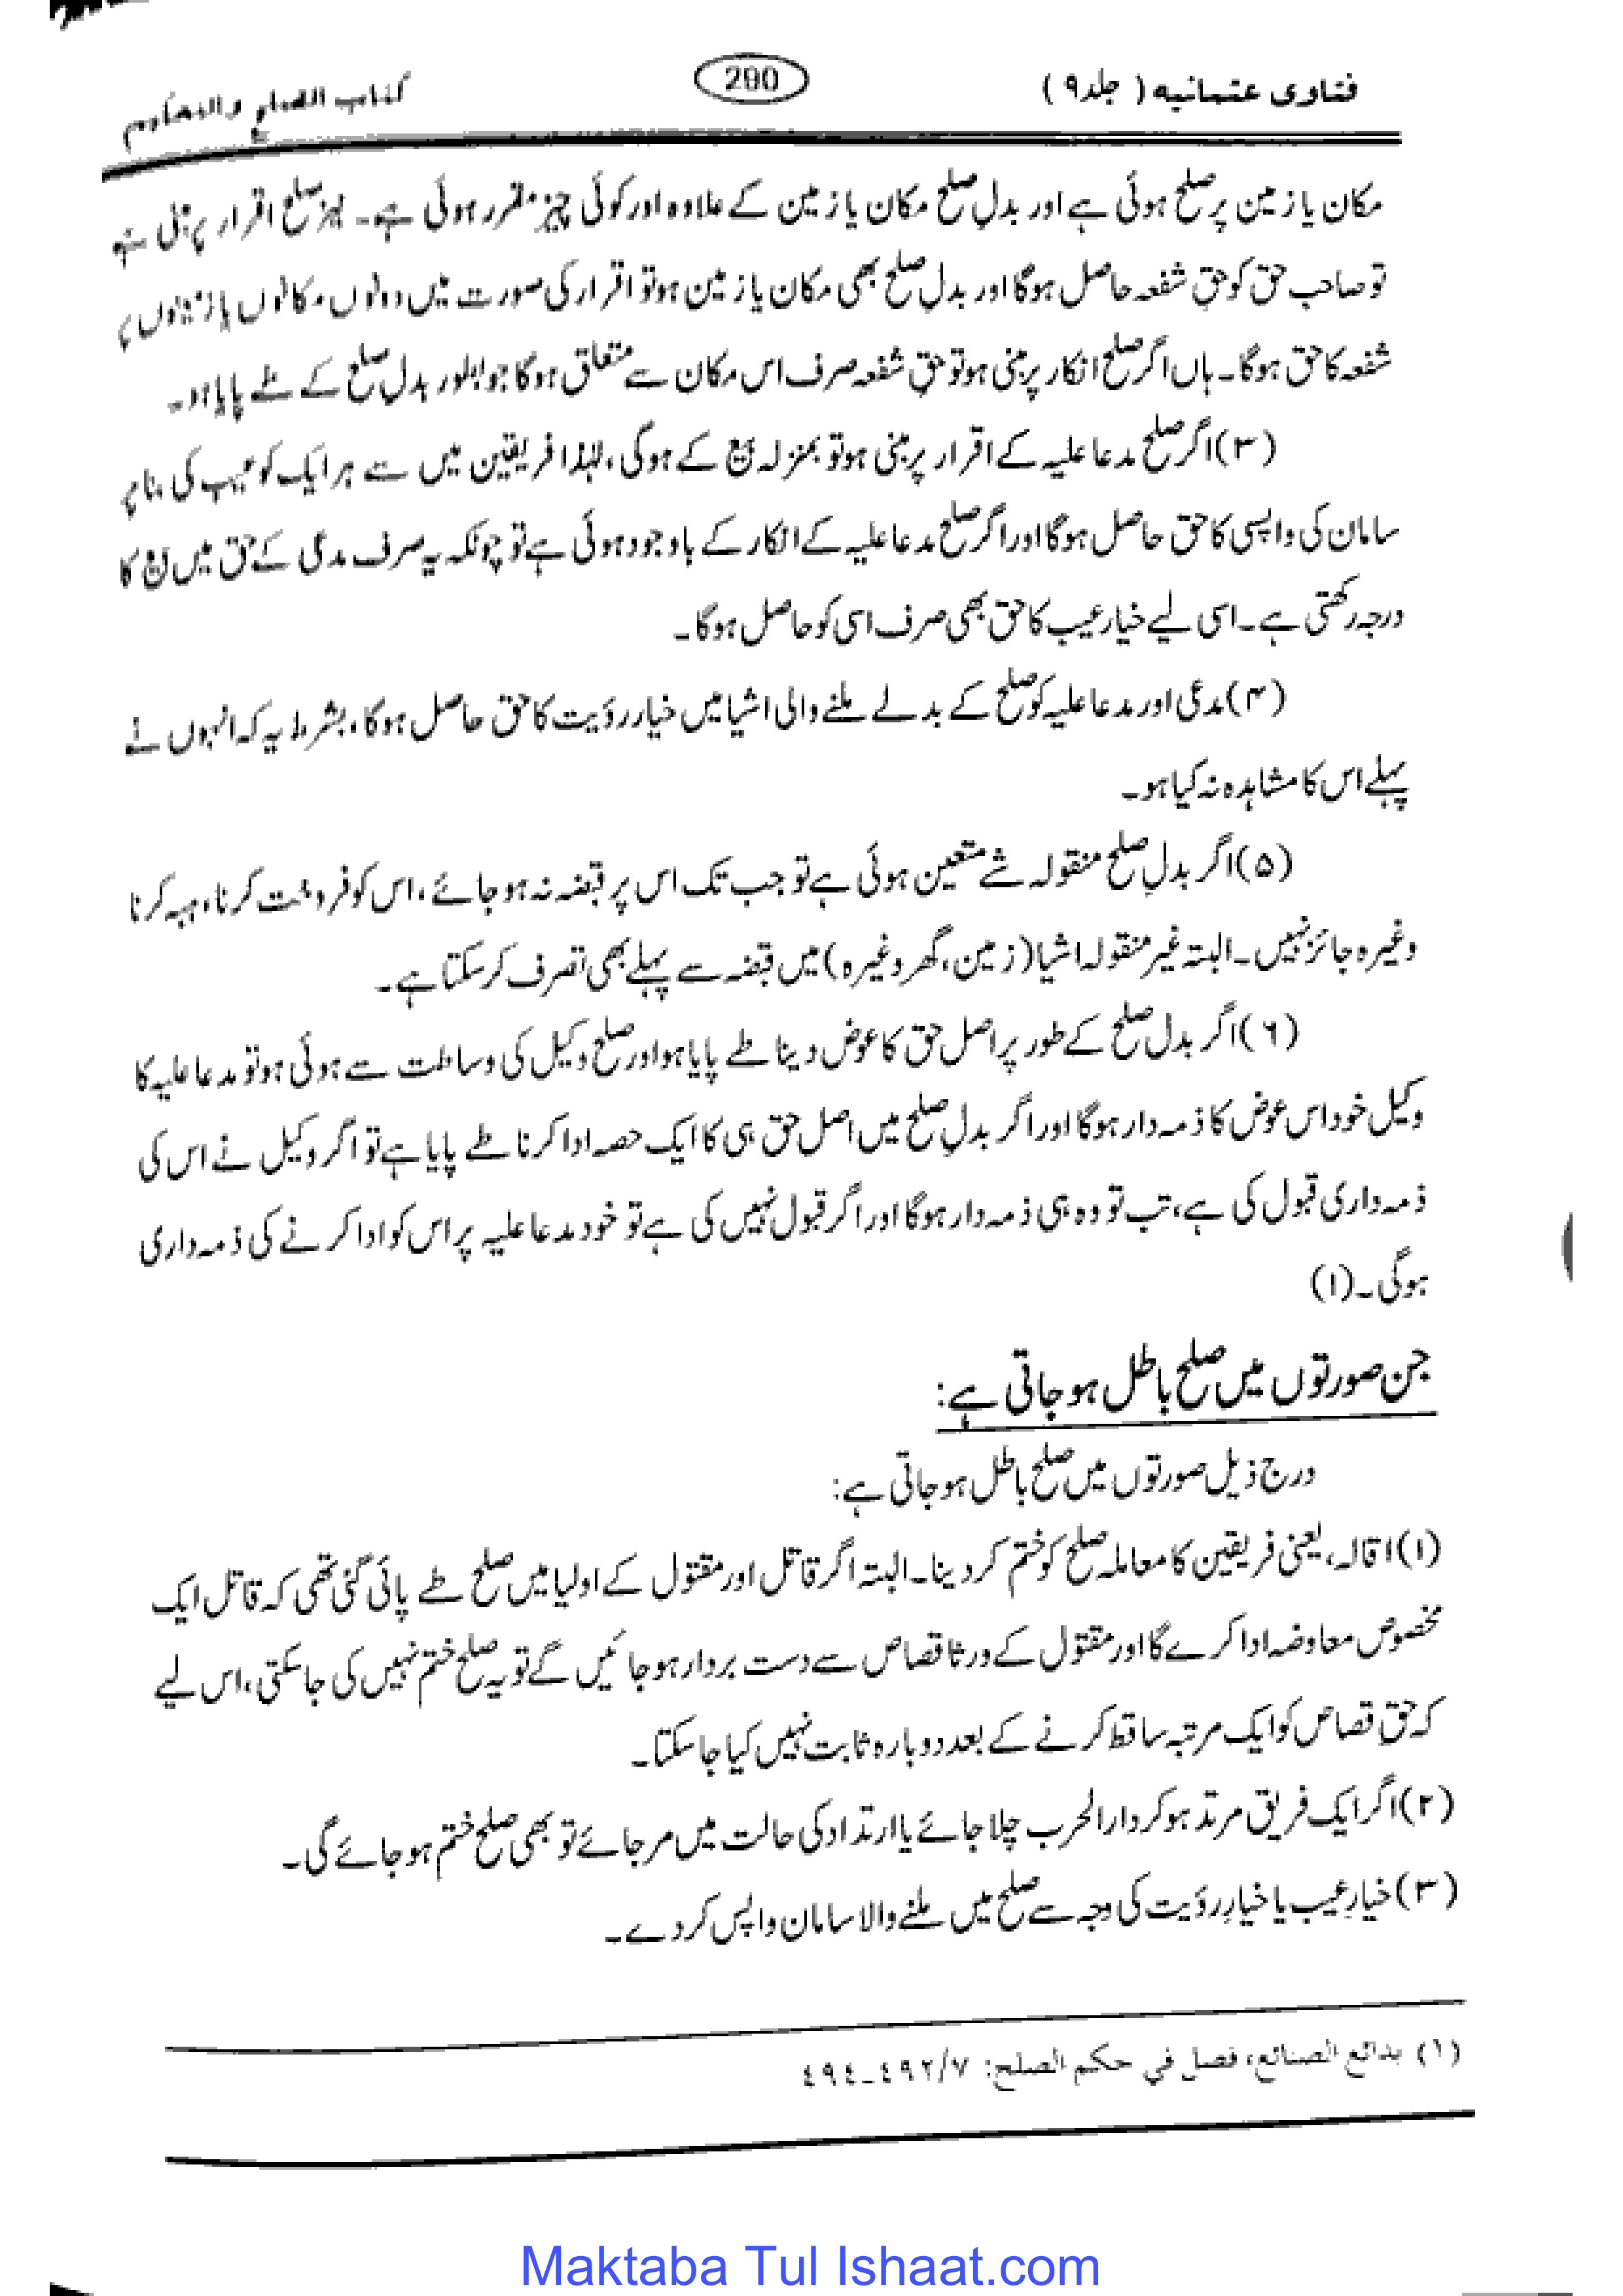 فتاوی عثمانیه ( جلد۹ )
290
كتاب الصلح والتحكيم
مکان یا زمین پر صلح ہوئی ہے اور بدلِ صلح مکان یا زمین کے علاوہ اور کوئی چیز مقرر ہوئی ہے۔ نیز صلح اقرار پر مبنی ہے
تو صاحب حق کو حقِ شفعہ حاصل ہوگا اور بدلِ صلح بھی مکان یا زمین ہو تو اقرار کی صورت میں دونوں مکانوں یا زمینوں پر
شفعہ کا حق ہوگا۔ ہاں اگر صلح انکار پر مبنی ہو تو حقِ شفعہ صرف اس مکان سے متعلق ہوگا جو بطور بدل صلح کے طے پایا ہو۔
(۳) اگر صلح مدعا علیہ کے اقرار پر مبنی ہو تو بمنزلہ بیع کے ہوگی، لہٰذا فریقین میں سے ہر ایک کو عیب کی بنا پر
سامان کی واپسی کا حق حاصل ہوگا اور اگر صلح مدعا علیہ کے انکار کے باوجود ہوئی ہے تو چونکہ یہ صرف مدعی کے حق میں بیع کا
درجہ رکھتی ہے۔ اسی لیے خیار عیب کا حق بھی صرف اسی کو حاصل ہوگا۔
(۴) مدعی اور مدعا علیہ کو صلح کے بدلے ملنے والی اشیا میں خیار رؤیت کا حق حاصل ہوگا، بشرط یہ کہ انہوں نے
پہلے اس کا مشاہدہ نہ کیا ہو۔
(۵) اگر بدلِ صلح منقولہ شے متعین ہوئی ہے تو جب تک اس پر قبضہ نہ ہو جائے، اس کو فروخت کرنا، ہبہ کرنا
وغیرہ جائز نہیں۔ البتہ غیر منقولہ اشیا (زمین، گھر وغیرہ) میں قبضہ سے پہلے بھی تصرف کر سکتا ہے۔
(۶) اگر بدل صلح کے طور پر اصل حق کا عوض دینا طے پایا ہو اور صلح وکیل کی وساطت سے ہوئی ہو تو مدعا علیہ کا
وکیل خود اس عوض کا ذمہ دار ہوگا اور اگر بدلِ صلح میں اصل حق ہی کا ایک حصہ ادا کرنا طے پایا ہے تو اگر وکیل نے اس کی
ذمہ داری قبول کی ہے، تب تو وہ ہی ذمہ دار ہوگا اور اگر قبول نہیں کی ہے تو خود مدعا علیہ پر اس کو ادا کرنے کی ذمہ داری
ہوگی۔(۱)
جن صورتوں میں صلح باطل ہو جاتی ہے:
درج ذیل صورتوں میں صلح باطل ہو جاتی ہے:
(۱) اقالہ، یعنی فریقین کا معاملہ صلح کو ختم کر دینا۔ البتہ اگر قاتل اور مقتول کے اولیا میں صلح طے پائی گئی تھی کہ قاتل ایک
مخصوص معاوضہ ادا کرے گا اور مقتول کے ورثا قصاص سے دست بردار ہو جائیں گے تو یہ صلح ختم نہیں کی جاسکتی، اس لیے
کہ حق قصاص کو ایک مرتبہ ساقط کرنے کے بعد دوبارہ ثابت نہیں کیا جاسکتا۔
(۲) اگر ایک فریق مرتد ہو کر دار الحرب چلا جائے یا ارتداد کی حالت میں مر جائے تو بھی صلح ختم ہو جائے گی۔
(۳) خیارِ عیب یا خیارِ رؤیت کی وجہ سے صلح میں ملنے والا سامان واپس کر دے۔
(۱) بدائع الصنائع، فصل في حكم الصلح: ٤٩٢/٧-٤٩٤
Maktaba Tul Ishaat.com